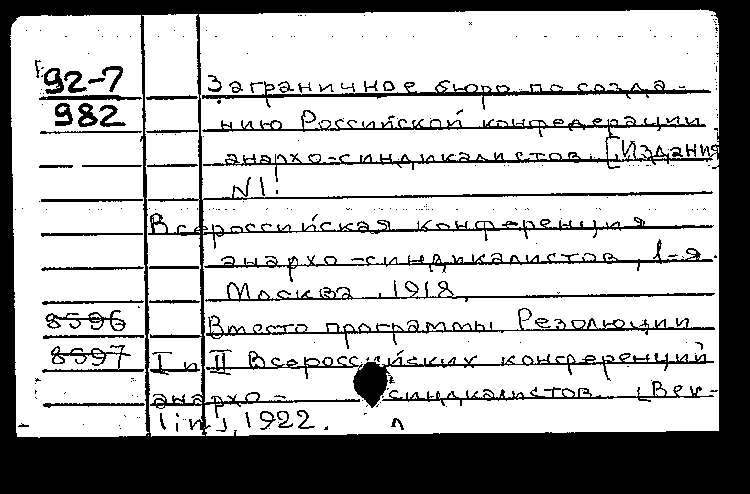 92-7 Заграничное бюро по созда-
982 нию Российской конфедерации
анархо-синдикалистов. [Издания]
N1.
Всероссийская конференция
анархо-синдикалистов, 1-я.
Москва, 1918.
8596 Вместо программы. Резолюции
8597 I и II Всероссийских конференций
анархо-синдикалистов. [Ber-
lin], 1922.